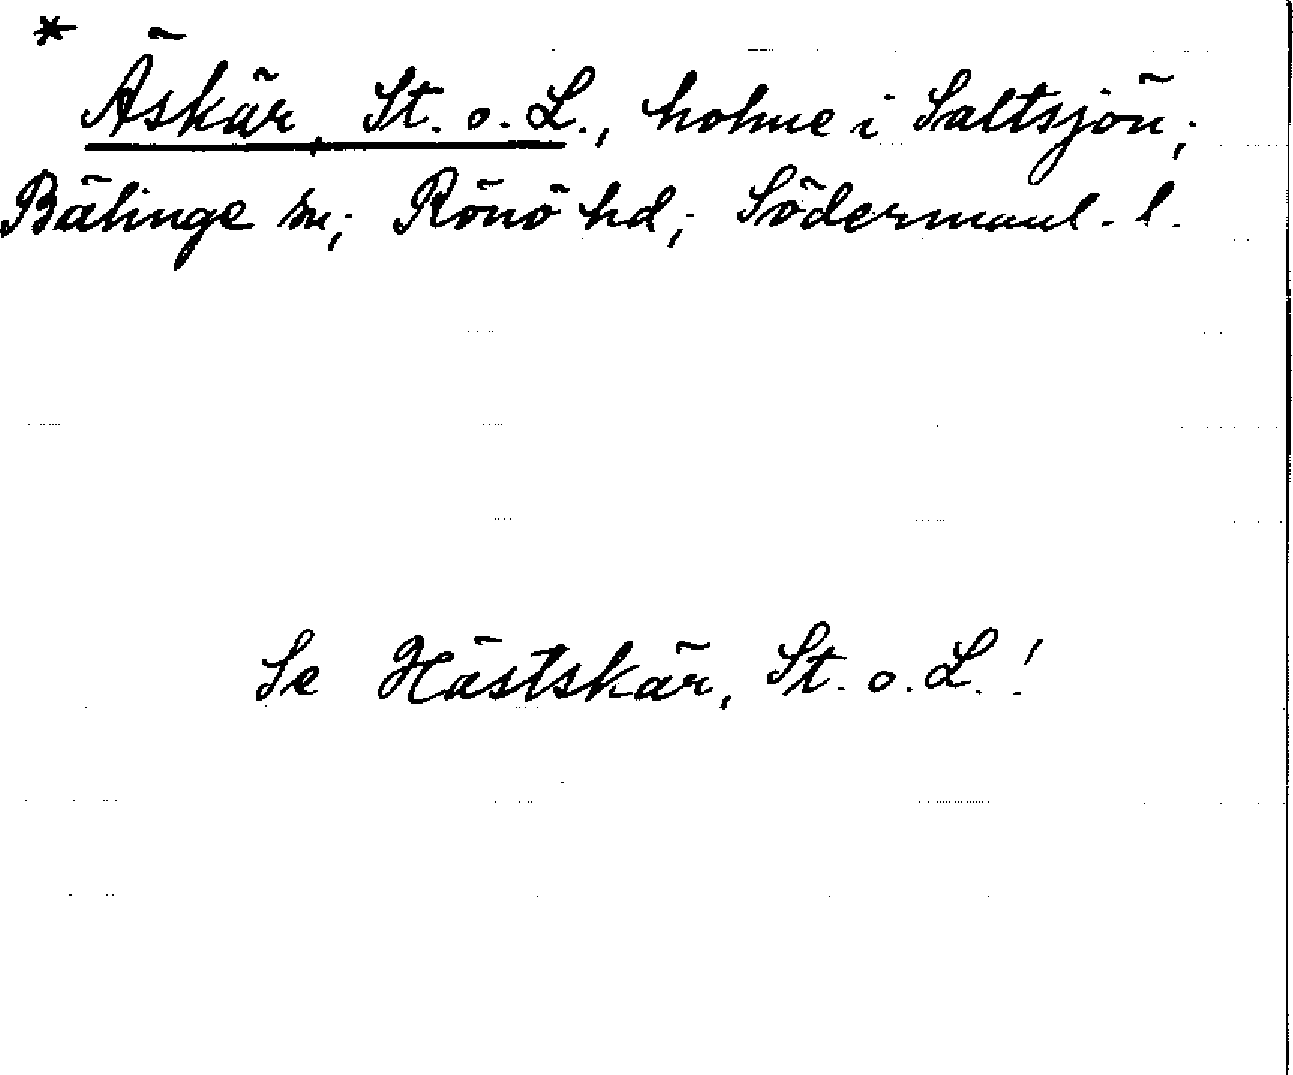 * Äskär, St. o. L., holme i Saltsjön;
Bälinge sn; Rönö hd; Södermanl. l.
Se Hästskär, St. o. L.!